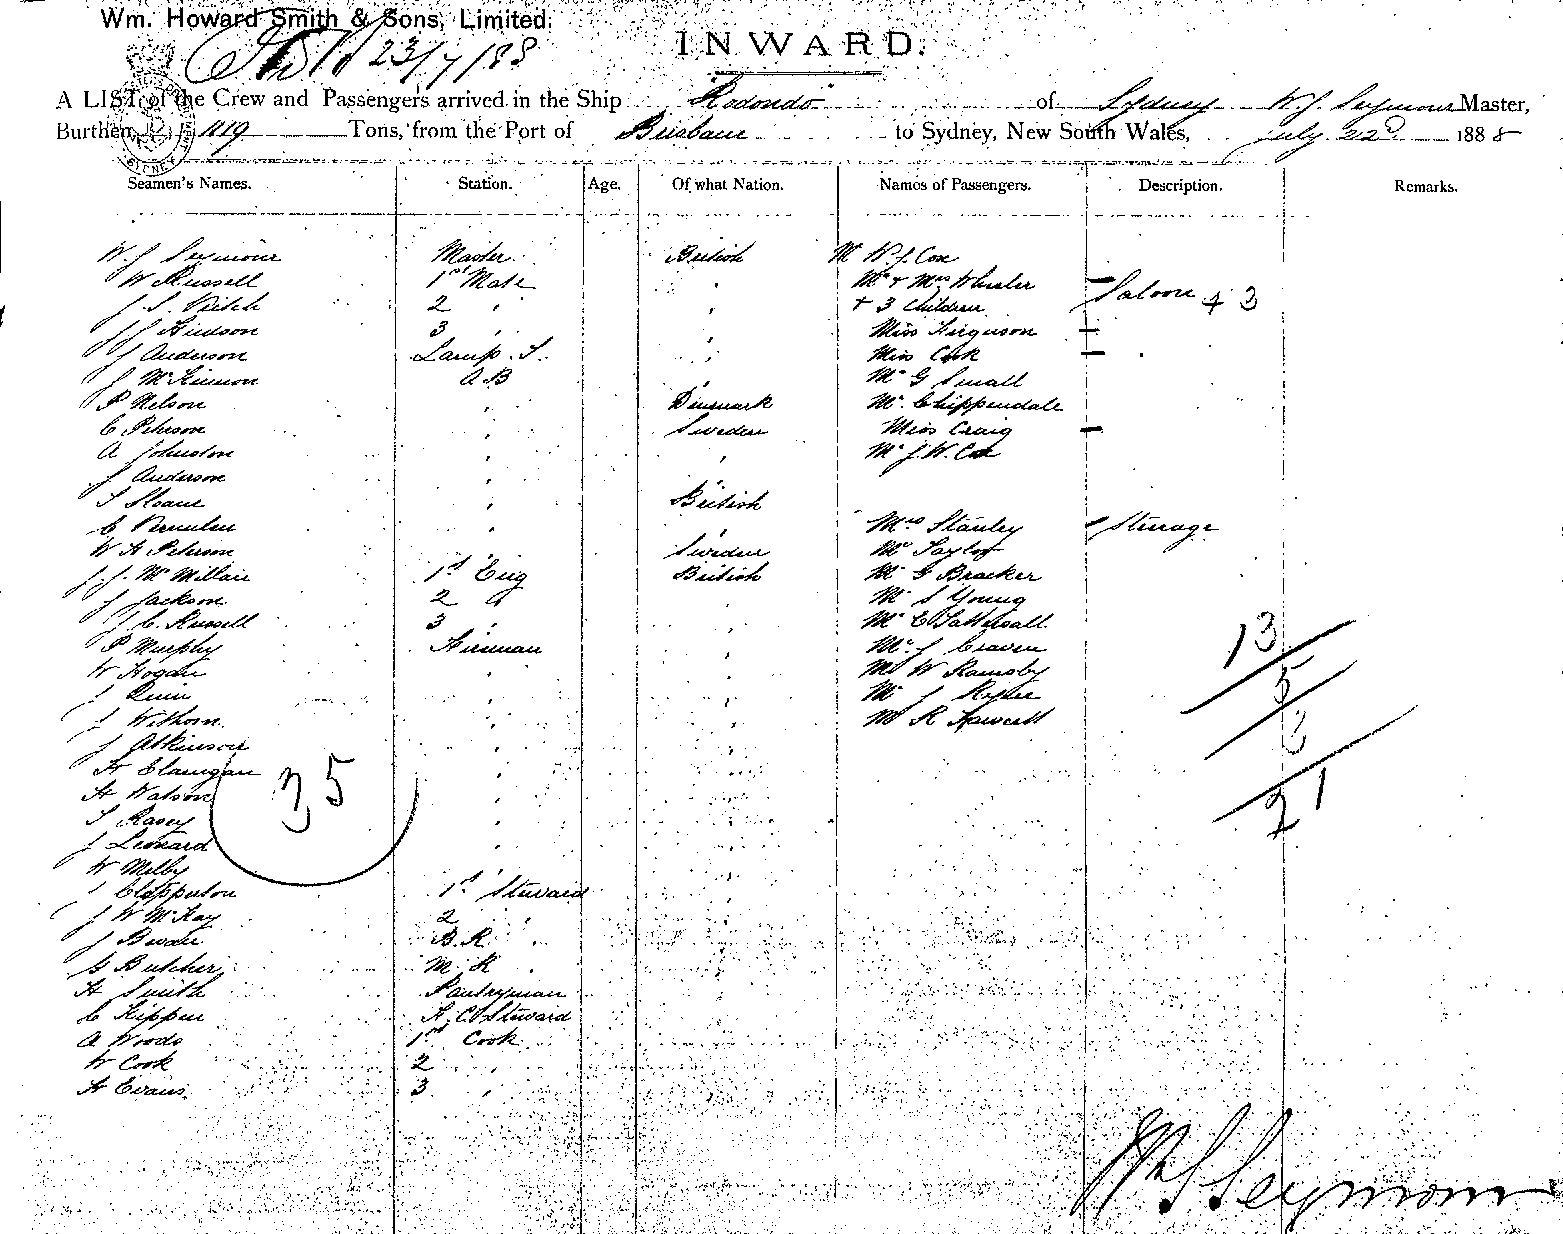 Wm. Howard Smith & Sons, Limited.
23/7/88
INWARD.
A LIST of the Crew and Passengers arrived in the Ship "Rodondo" of Sydney W. J. Seymour Master,
Burthen 1119 Tons, from the Port of Brisbane to Sydney, New South Wales, July 22d 1888
Seamen's Names. Station. Age. Of what Nation. Names of Passengers. Description. Remarks.
W. J Seymour Master British Mr W. J. Cox
W Russell 1st Mate " Mr & Mrs Wheeler
J. S. Veitch 2 " " + 3 Children Saloon + 3
J J Hudson 3 " " Miss Ferguson
J Anderson Lamp. T. " Miss Cook
J McKinnon A B " Mr G Small
P Nelson " Denmark Mr. Chippendale
C Pehrson " Sweden Miss Craig
A Johnston " " Mr J. W. Cox
J Anderson " "
T Sloane " British
C Vermulen " " Mrs Stanley Steerage
W A Pehrson " Sweden Mr Taylor
J. J. McMillan 1st Eng British Mr G Bracker
J Jackson 2 " " Mr S Young
J C. Russell 3 " " Mr E Tattersall
P Murphy Fireman " Mr J Craven
W Hogan " " Mr W Ramsby
J Quin " " Mr J
J " " Mr R Fawcett
J Atkinson " "
H Flanigan " "
H Watson " "
T Rasey " "
J Leonard " "
W Melby " "
J Clapperton 1st Steward "
J W McKay 2 " "
J B. R. "
G Butcher M. R "
H Smith Pantryman
C Kippen F. C. Steward
A Woods 1st Cook
W Cook 2 "
H Evans 3 "
35
13
5
3
21
W J Seymour